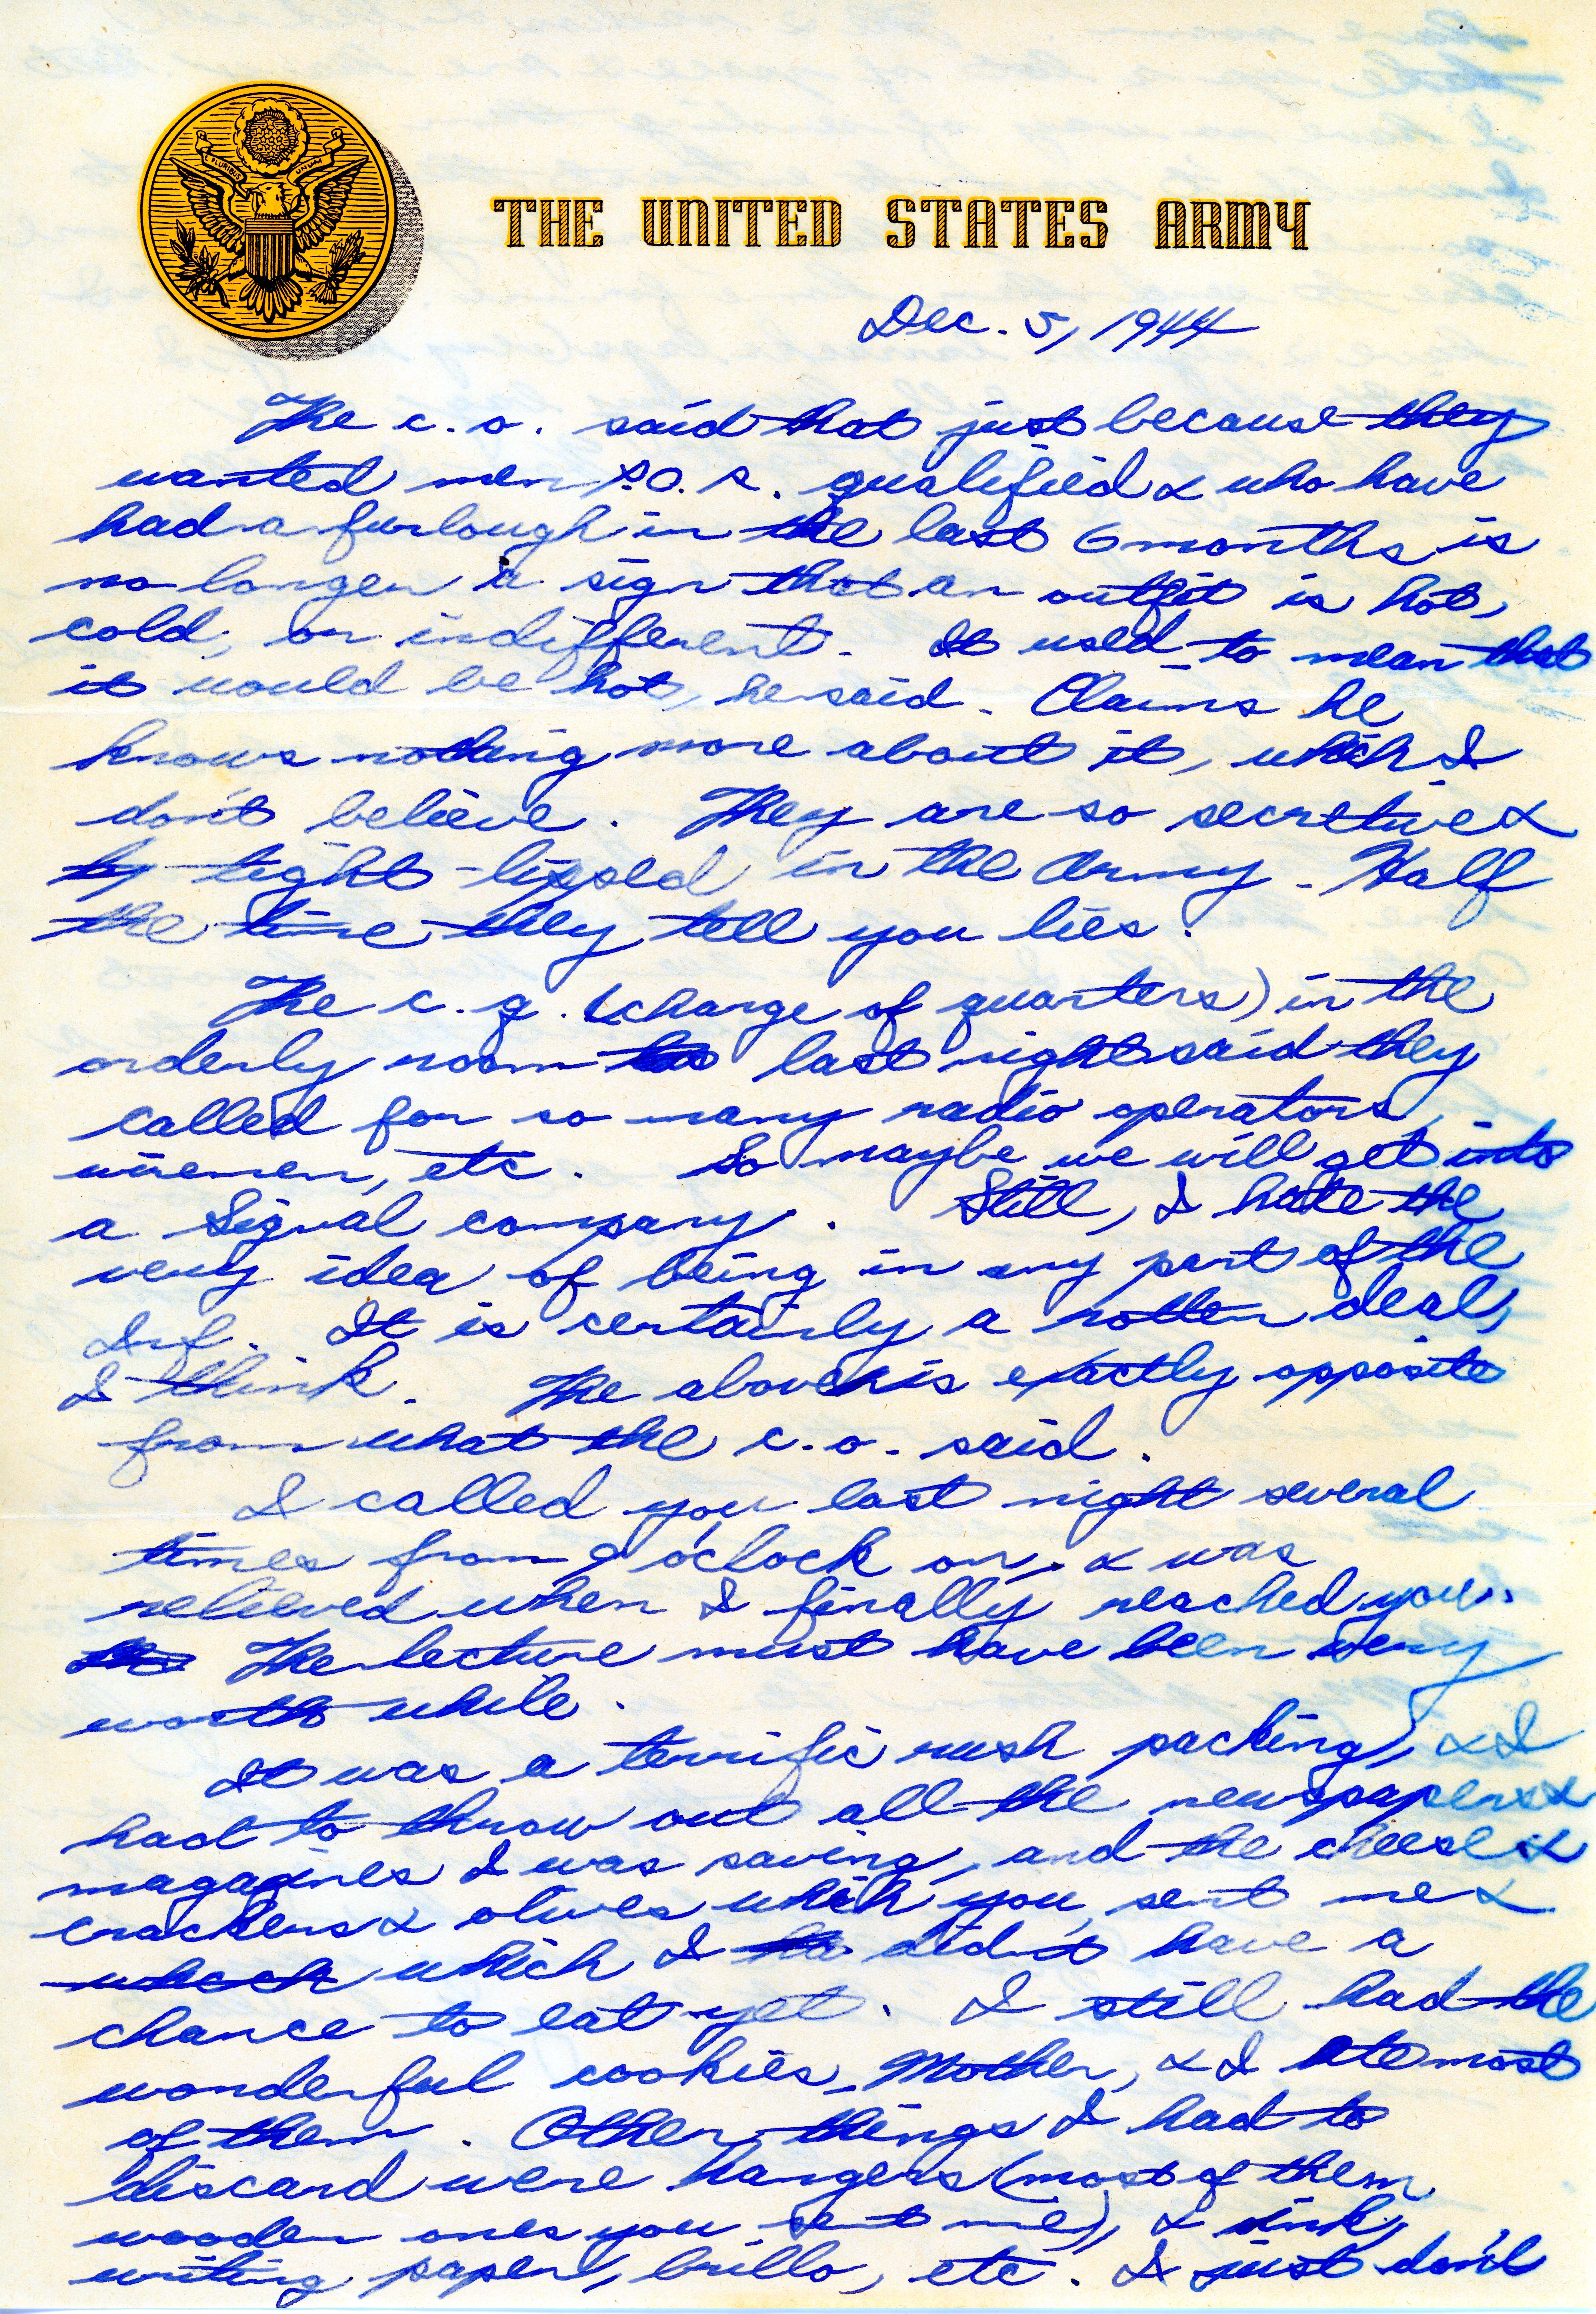 E PLURIBUS UNUM
THE UNITED STATES ARMY
Dec. 5, 1944
The c.o. said that just because they
wanted men P.O.R. qualified & who have
had a furlough in the last 6 months is
no longer a sign that an outfit is hot,
cold, or indifferent. It used to mean that
it would be hot, he said. Claims he
knows nothing more about it, which I
don't believe. They are so secretive &
ty tight-lipped in the Army. Half
the time they tell you lies.
The c.q. (charge of quarters) in the
orderly room last night said they
called for so many radio operators,
wiremen, etc. So maybe we will get into
a Signal company. Still, I hate the
very idea of being in any part of the
Inf. It is certainly a rotten deal,
I think. The above is exactly opposite
from what the c.o. said.
I called you last night several
times from 9 o'clock on, & was
relieved when I finally reached you.
The lecture must have been very
worth while.
It was a terrific rush packing, & I
had to throw out all the newspapers &
magazines I was saving, and the cheese &
crackers & olives which you sent me &
which which I didn't have a
chance to eat yet. I still had the
wonderful cookies, Mother, & I ate most
of them. Other things I had to
discard were hangers (most of them
wooden ones you sent me), & ink,
writing paper, brillo, etc. I just don't